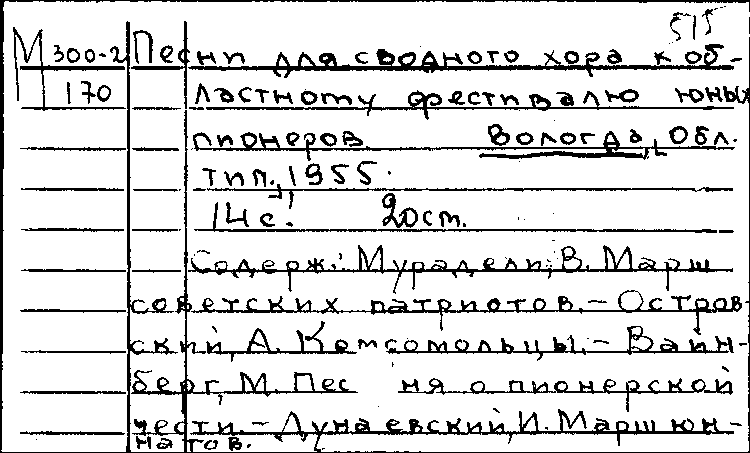 515
М 300-2 Песни для сводного хора к об-
170 ластному фестивалю юных
пионеров. Вологда, Обл.
тип., 1955.
14 с. 20 см.
Содерж.: Мурадели, В. Марш
советских патриотов. – Остров
ский, А. Комсомольцы. – Вайн-
берг, М. Пес ня о пионерской
чести. – Дунаевский, И. Марш юн-
натов.